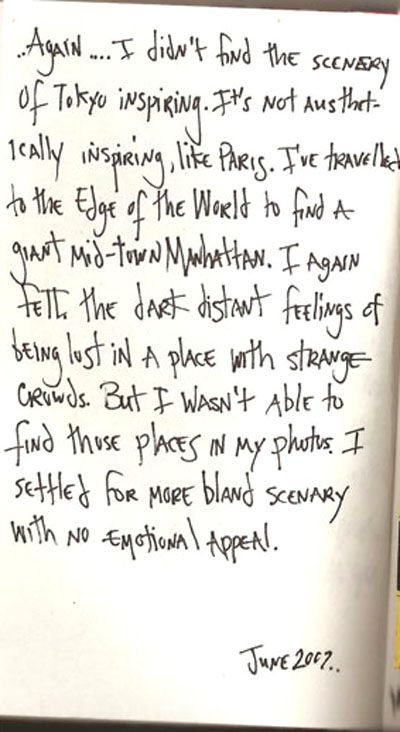 ..Again.... I didn't find the scenery
of Tokyo inspiring. It's not austhet-
ically inspiring, like Paris. I've travelled
to the Edge of the World to find a
giant Mid-town Manhattan. I again
felt the dark distant feelings of
being lost in a place with strange
crowds. But I wasn't able to
find those places in my photos. I
settled for more bland scenary
with no emotional appeal.
June 2007..